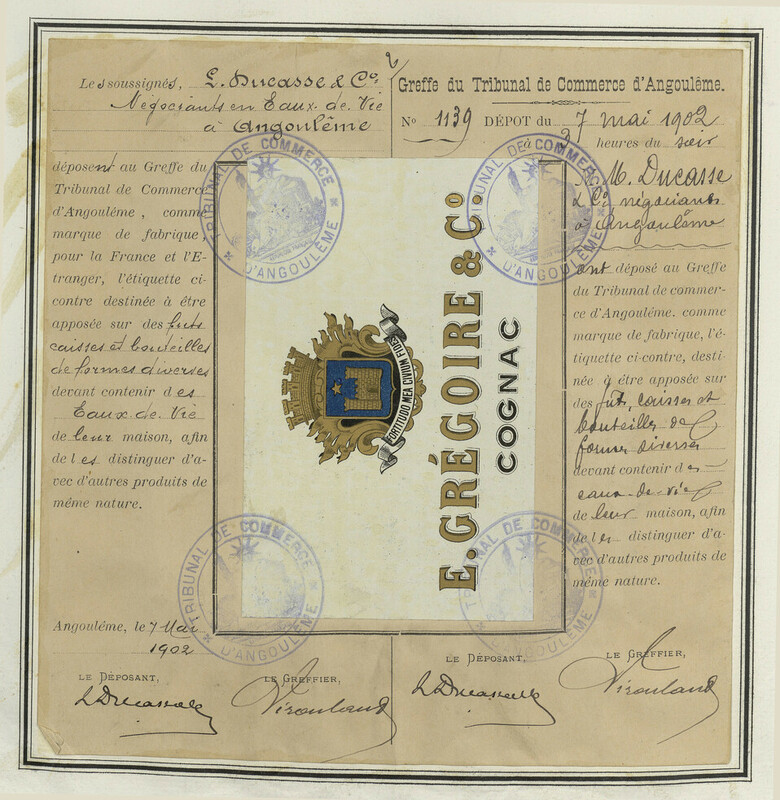 Les soussignés, L. Ducasse & Co.
Négociants en Eaux-de-Vie
à Angoulême
déposent au Greffe du
Tribunal de Commerce
d'Angoulême, comme
marque de fabrique,
pour la France et l'E-
tranger, l'étiquette ci-
contre destinée à être
apposée sur des futs
caisses et bouteilles
de formes diverses
devant contenir des
Eaux-de-Vie
de leur maison, afin
de les distinguer d'a-
vec d'autres produits de
même nature.
Angoulême, le 7 Mai
1902
LE DÉPOSANT,
L Ducasse
LE GREFFIER,
TRIBUNAL DE COMMERCE
D'ANGOULÊME
TRIBUNAL DE COMMERCE
D'ANGOULÊME
TRIBUNAL DE COMMERCE
D'ANGOULÊME
TRIBUNAL DE COMMERCE
D'ANGOULÊME
FORTITUDO MEA CIVIUM FIDES
E. GRÉGOIRE & Co.
COGNAC
Greffe du Tribunal de Commerce d'Angoulême.
No 1139 DÉPOT du 7 mai 1902
à 2 heures du soir
M. Ducasse
& Co négociants
à Angoulême
ont déposé au Greffe
du Tribunal de commer-
ce d'Angoulême. comme
marque de fabrique, l'é-
tiquette ci-contre, desti-
née à être apposée sur
des fût, caisses et
bouteilles de
formes diverses
devant contenir des
eaux-de-vie
de leur maison, afin
de les distinguer d'a-
vec d'autres produits de
même nature.
LE DÉPOSANT,
L Ducasse
LE GREFFIER,